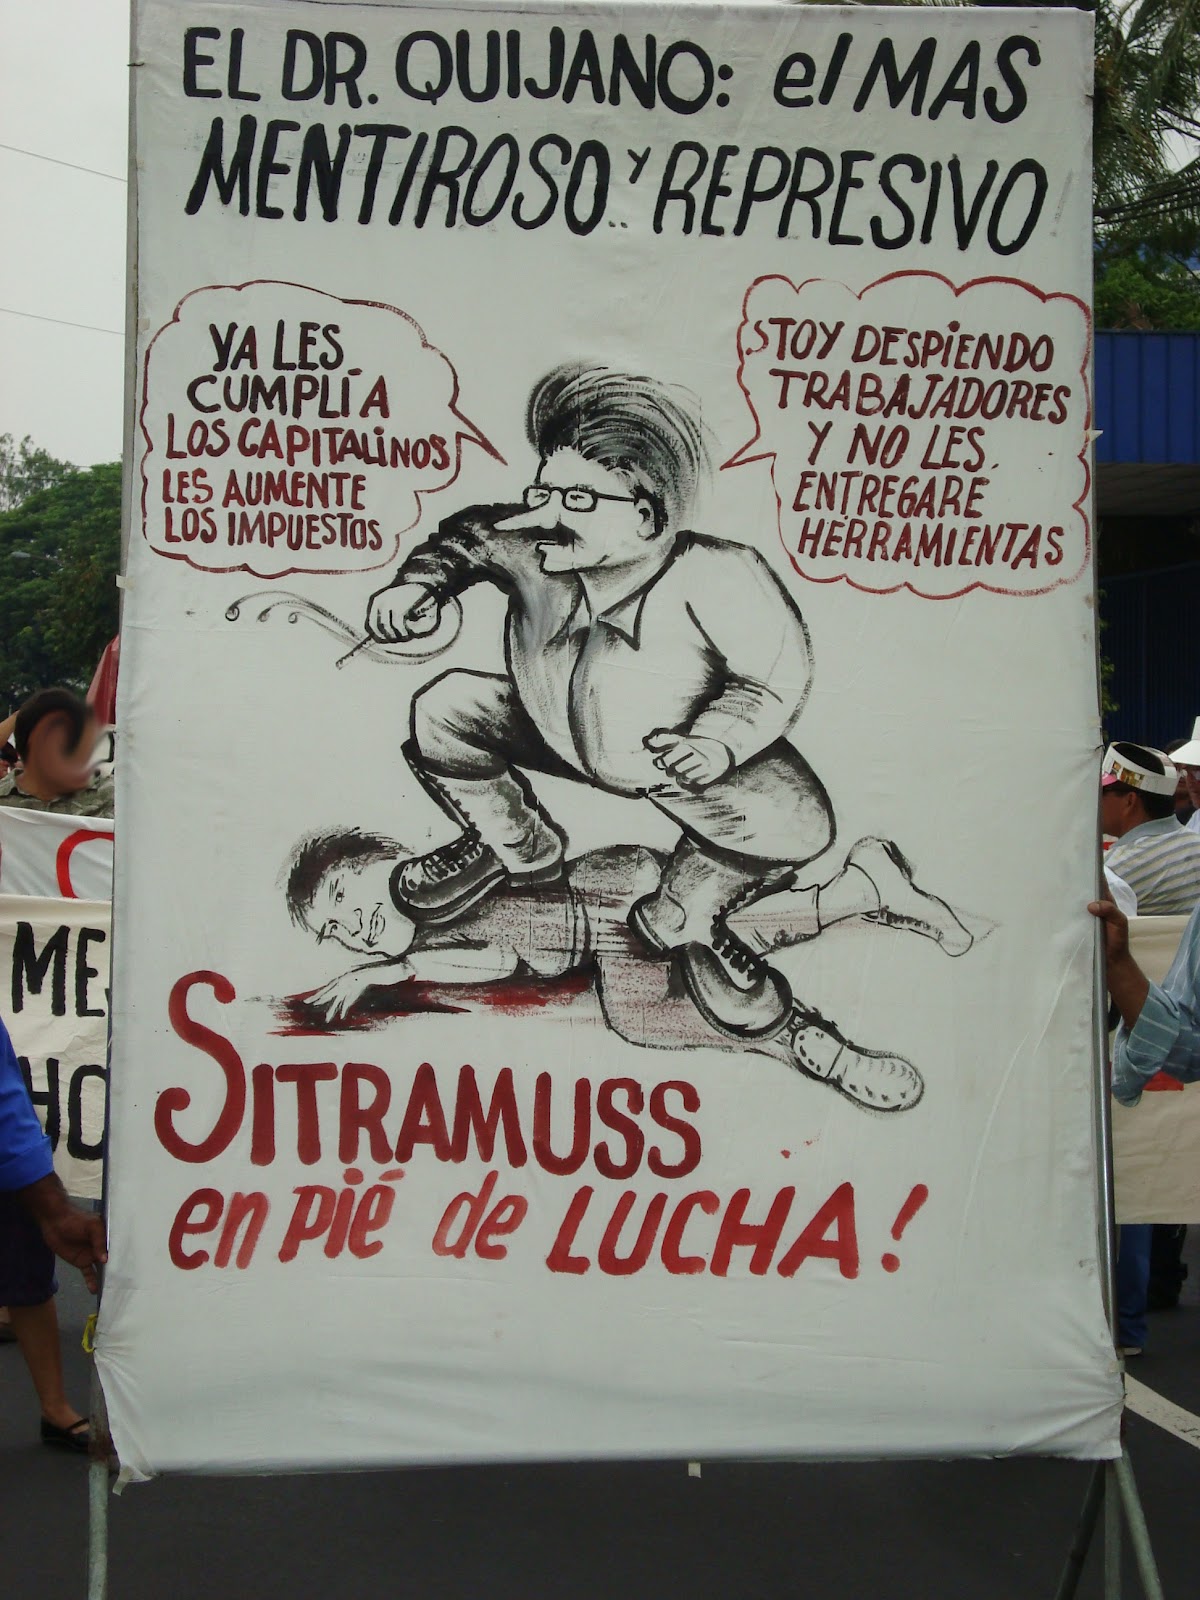 EL DR. QUIJANO: el MAS
MENTIROSO.. Y REPRESIVO
YA LES
CUMPLÍ A
LOS CAPITALINOS
LES AUMENTE
LOS IMPUESTOS
STOY DESPIENDO
TRABAJADORES
Y NO LES
ENTREGARÉ
HERRAMIENTAS
SITRAMUSS
en pié de LUCHA!
ME
HO